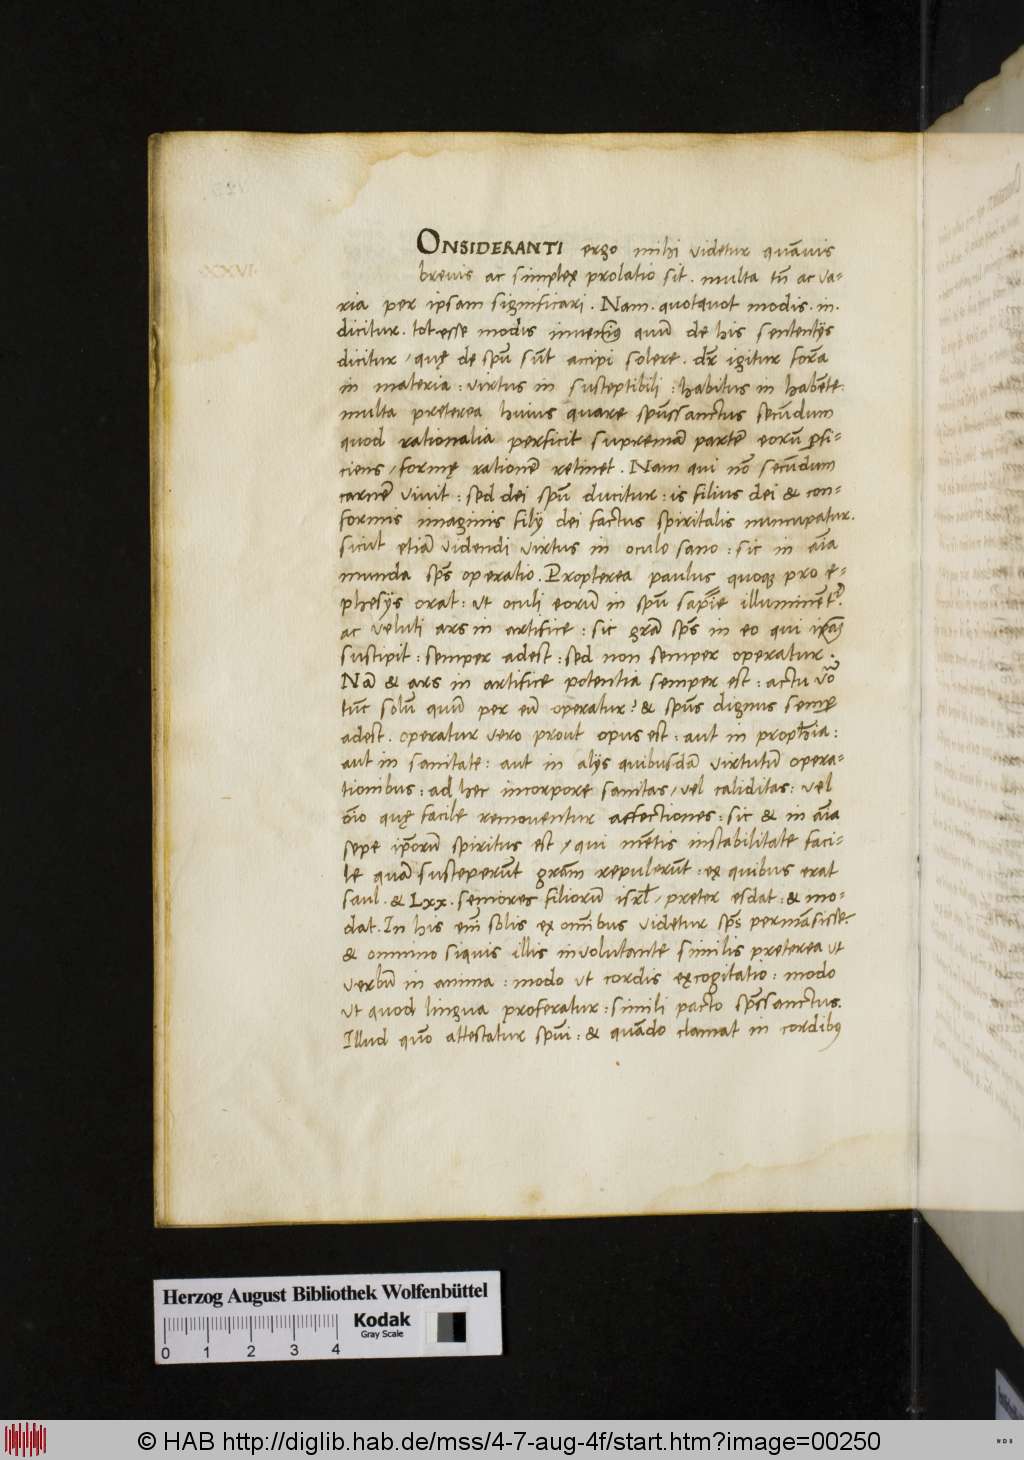 ONSIDERANTI ergo mihi videtur quãuis
breuis ac simplex prolatio sit. multa tñ ac va-
ria per ipsam significari. Nam. quotquot modis. in.
dicitur. tot esse modis inuenio quũ de his sententijs
dicitur, quę de spũ sũt accipi solere. dr̃ igitur forã
in materia: virtus in susceptibili: habitus in habẽte
multa preterea huius quare spũssanctus secũdum
quod rationalia perficit supremã partẽ eorũ ꝓfi-
ciens, formę rationẽ retinet. Nam qui nõ secũdum
carnẽ viuit: sed dei spũ ducitur: is filius dei & con-
formis imaginis filij dei factus spiritalis nuncupatur.
sicut etiã videndi virtus in oculo sano: sic in aĩa
munda sp̃s operatio. Propterea paulus quoqꝫ pro e-
phesijs orat: ut oculi eorũ in spũ sapĩe illuminẽt᷑.
ac veluti ars in artifice: sic grã sp̃s in eo qui
suscipit: semper adest: sed non semper operatur.
Nã & ars in artifice potentia semper est: actu võ
tũc solũ quũ per eũ operatur? & spũs dignus semꝑ
adest. operatur vero prout opus est: aut in prophĩa:
aut in sanitate: aut in alijs quibusdã virtutũ opera-
tionibus: ad hec incorpore sanitas, vel caliditas: vel
õio quę facile remouentur affectiones: sic & in aĩa
sepe ip̃orũ spiritus est, qui mẽtis instabilitate faci-
le quã susceperũt grãm repulerũt: ex quibus erat
saul. & Lxx. seniores filiorũ isrl̃, preter esdat: & mo-
dat. In his em̃ solis ex om̃ibus videtur sp̃s permãsisse.
& omnino siquis illis inuolutante similis preterea ut
verbũ in anima: modo ut cordis excogitatio: modo
ut quod lingua proferatur: simili pacto sp̃ssanctus.
Illud quõ attestatur spũi: & quãdo clamat in cordibꝰ
Herzog August Bibliothek Wolfenbüttel
Kodak
Gray Scale
0 1 2 3 4
© HAB http://diglib.hab.de/mss/4-7-aug-4f/start.htm?image=00250